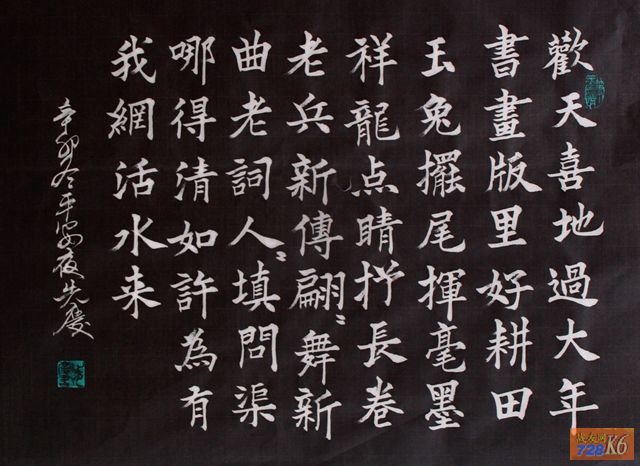 歡天喜地過大年
書畫版里好耕田
玉兔擺尾揮毫墨
祥龍点睛抒長卷
老兵新傳翩〻舞新
曲老詞人〻填問渠
哪得清如許為有
我網活水来
辛卯冬平安夜先慶
战友网
728K6